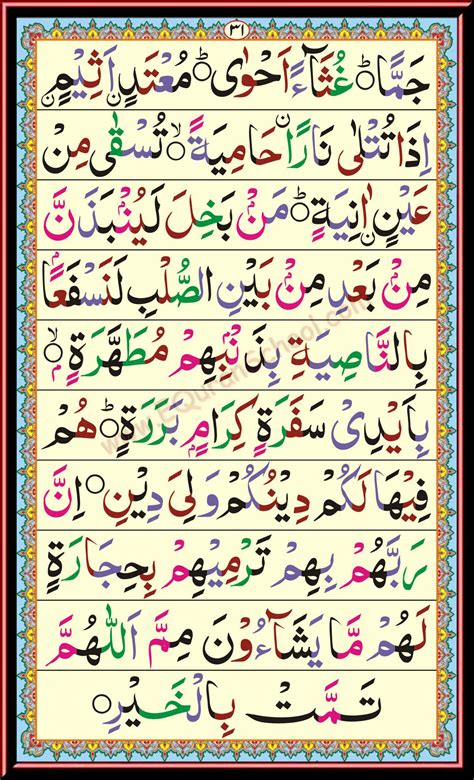 ٣١
جَمًّا ○ؕ غُثَآءً اَحْوٰی ○ؕ مُعْتَدٍ اَثِيْمٍ
اِذَا تُتْلٰی نَارًا حَامِيَةً ○ۙ تُسْقٰی مِنْ
عَيْنٍ اٰنِيَةٍ ○ؕ مَنْۢ بَخِلَ لَيُنْۢبَذَنَّ
مِنْۢ بَعْدِ مِنْۢ بَيْنِ الصُّلْبِ لَنَسْفَعًاۢ
بِالنَّاصِيَةِ بِذَنْۢبِهِمْ مُطَهَّرَةٍۭ ○ۙ
بِاَيْدِیْ سَفَرَةٍ كِرَامٍۭ بَرَرَةٍ ○ؕ هُمْ
فِيْهَا لَكُمْ دِيْنُكُمْ وَلِیَ دِيْنِ ○ اِنَّ
رَبَّهُمْ بِهِمْ تَرْمِيْهِمْ بِحِجَارَةٍ
لَهُمْ مَّا يَشَآءُوْنَ مِمَّ اللّٰهُمَّ
تَمَّتْ بِالْخَيْرِ ○
www.EQuranSchool.com